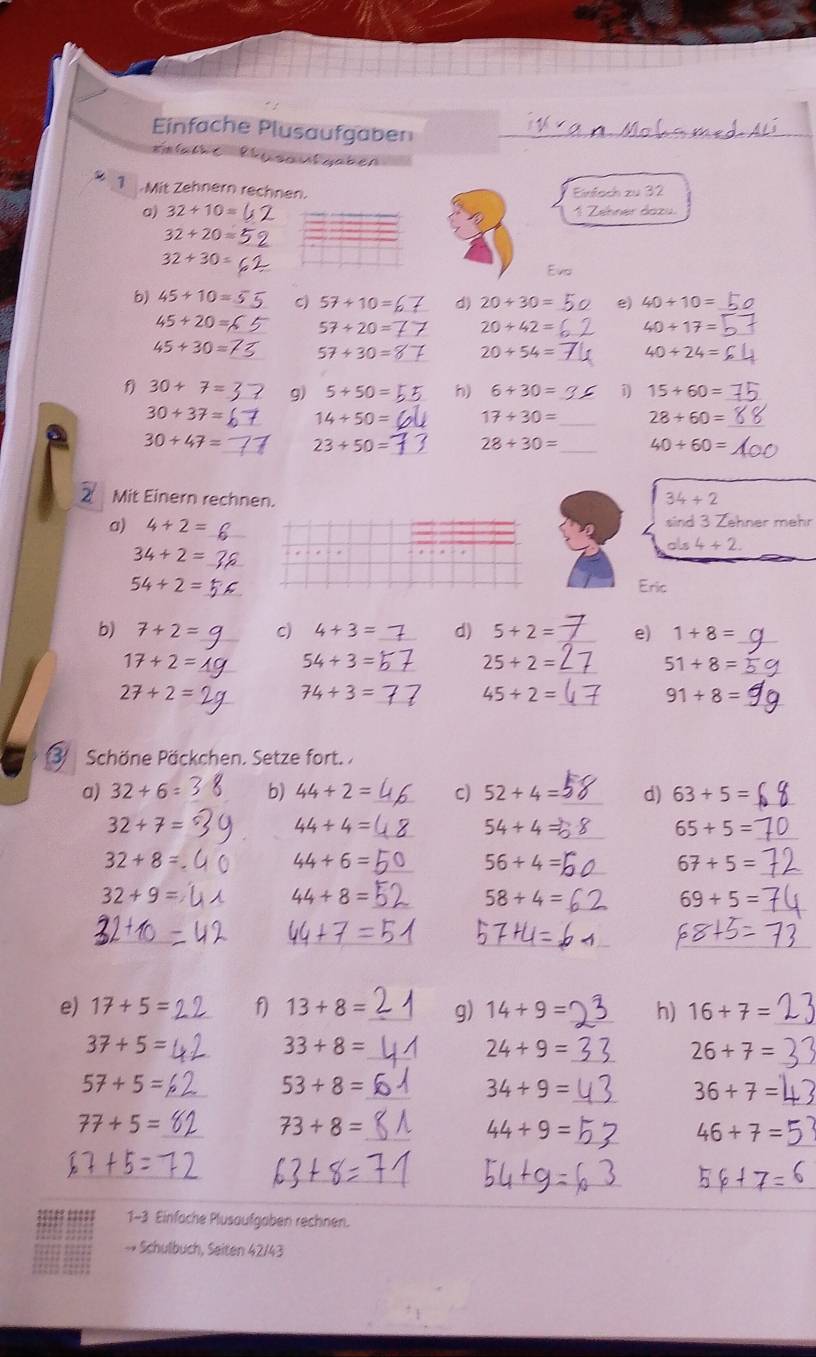 Einfache Plusaufgaben
Mohamed Ali
1 Mit Zehnern rechnen.
Einfach zu 32
1 Zehner dazu.
a) 32 + 10 = 42
32 + 20 = 52
32 + 30 = 62
Eva
b) 45 + 10 = 55 c) 57 + 10 = 67 d) 20 + 30 = 50 e) 40 + 10 = 50
45 + 20 = 65 57 + 20 = 77 20 + 42 = 62 40 + 17 = 57
45 + 30 = 75 57 + 30 = 87 20 + 54 = 74 40 + 24 = 64
f) 30 + 7 = 37 g) 5 + 50 = 55 h) 6 + 30 = 36 i) 15 + 60 = 75
30 + 37 = 67 14 + 50 = 64 17 + 30 = 28 + 60 = 88
30 + 47 = 77 23 + 50 = 73 28 + 30 = 40 + 60 = 100
2 Mit Einern rechnen.
34 + 2
sind 3 Zehner mehr
als 4 + 2.
a) 4 + 2 = 6
34 + 2 = 36
54 + 2 = 56
Eric
b) 7 + 2 = 9 c) 4 + 3 = 7 d) 5 + 2 = 7 e) 1 + 8 = 9
17 + 2 = 19 54 + 3 = 57 25 + 2 = 27 51 + 8 = 59
27 + 2 = 29 74 + 3 = 77 45 + 2 = 47 91 + 8 = 99
3 Schöne Päckchen. Setze fort.
a) 32 + 6 = 38 b) 44 + 2 = 46 c) 52 + 4 = 58 d) 63 + 5 = 68
32 + 7 = 39 44 + 4 = 48 54 + 4 = 58 65 + 5 = 70
32 + 8 = 40 44 + 6 = 50 56 + 4 = 60 67 + 5 = 72
32 + 9 = 41 44 + 8 = 52 58 + 4 = 62 69 + 5 = 74
32 + 10 = 42 44 + 7 = 51 57 + 4 = 61 68 + 5 = 73
e) 17 + 5 = 22 f) 13 + 8 = 21 g) 14 + 9 = 23 h) 16 + 7 = 23
37 + 5 = 42 33 + 8 = 41 24 + 9 = 33 26 + 7 = 33
57 + 5 = 62 53 + 8 = 61 34 + 9 = 43 36 + 7 = 43
77 + 5 = 82 73 + 8 = 81 44 + 9 = 53 46 + 7 = 53
67 + 5 = 72 63 + 8 = 71 54 + 9 = 63 56 + 7 = 6
1–3 Einfache Plusaufgaben rechnen.
→ Schulbuch, Seiten 42/43